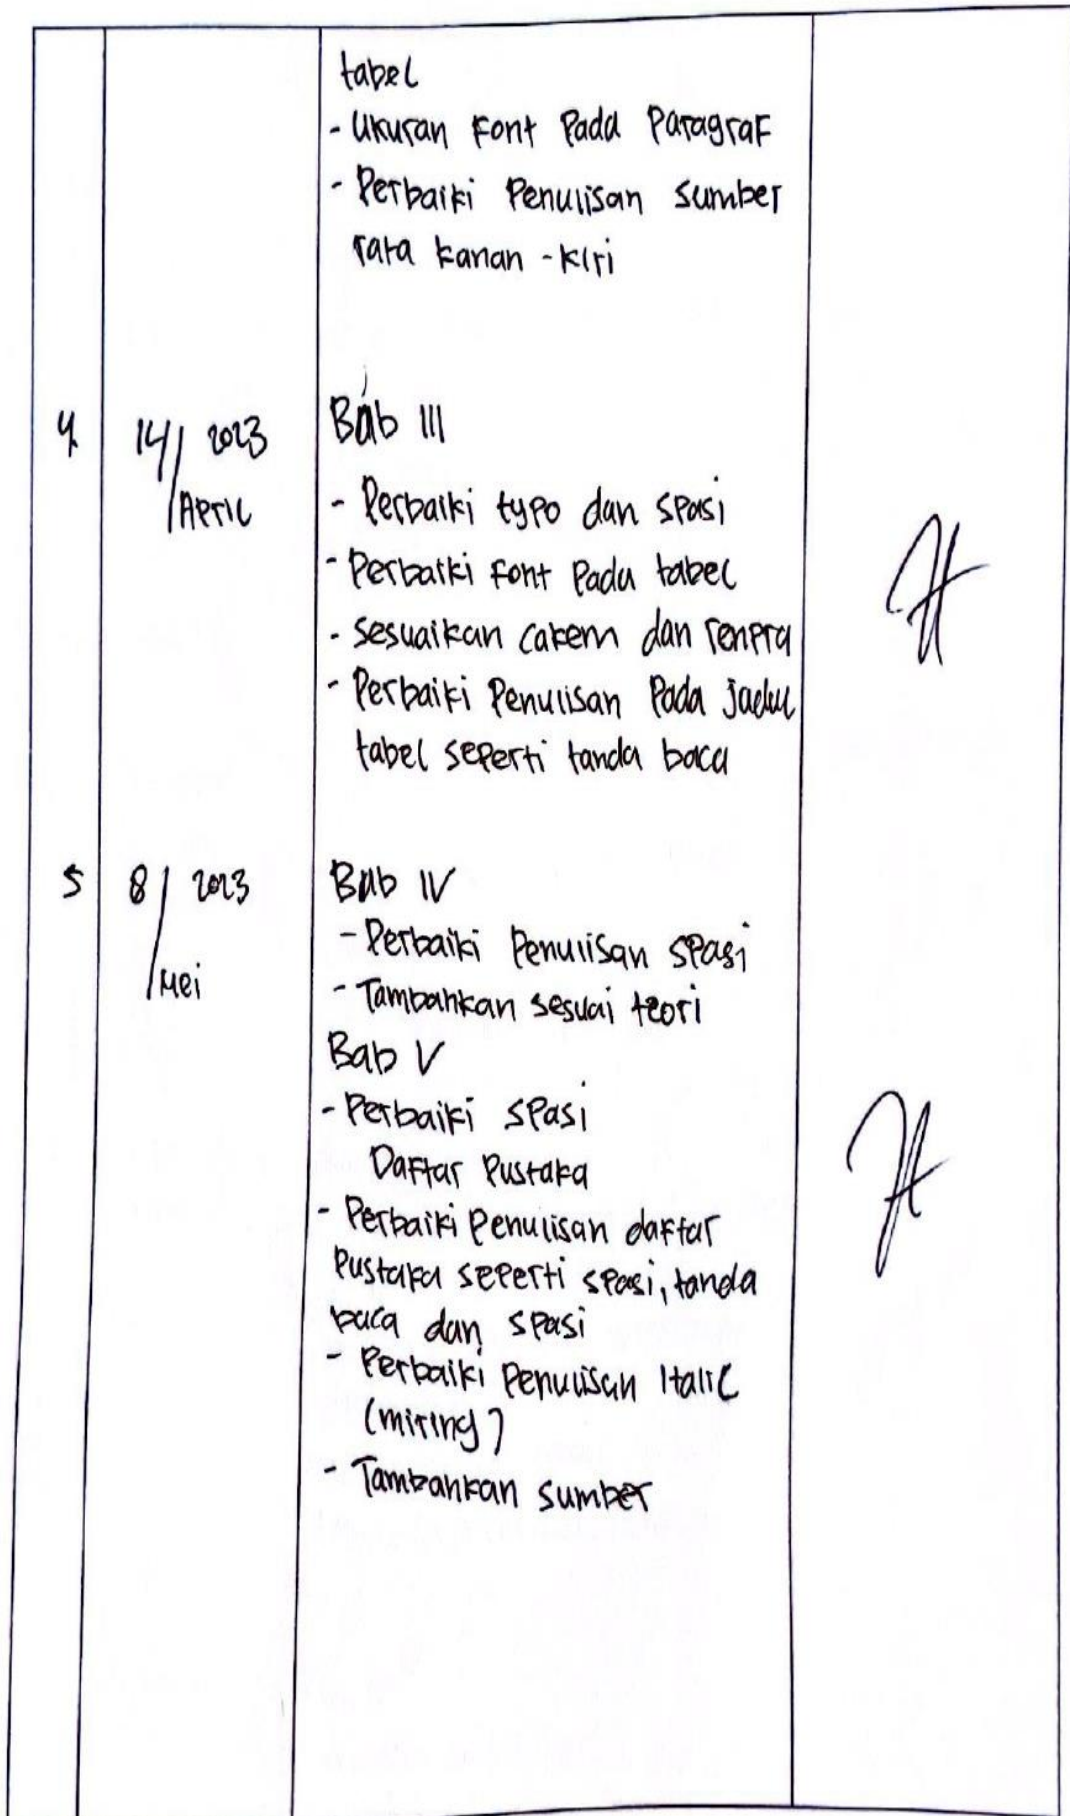 tabel
- Ukuran Font Pada Paragraf
- Perbaiki Penulisan sumber
rata kanan - kiri
4 14/ 2023 Bab III
/April - Perbaiki typo dan spasi
- Perbaiki font Pada tabel
- sesuaikan cakem dan renpra
- Perbaiki Penulisan Pada
tabel seperti tanda baca
5 8/ 2023 Bab IV
- Perbaiki Penulisan spasi
/Mei - Tambahkan sesuai teori
Bab V
- Perbaiki spasi
Daftar Pustaka
- Perbaiki Penulisan daftar
Pustaka seperti spasi, tanda
baca dan spasi
- Perbaiki Penulisan Italic
(miring)
- Tambahkan sumber